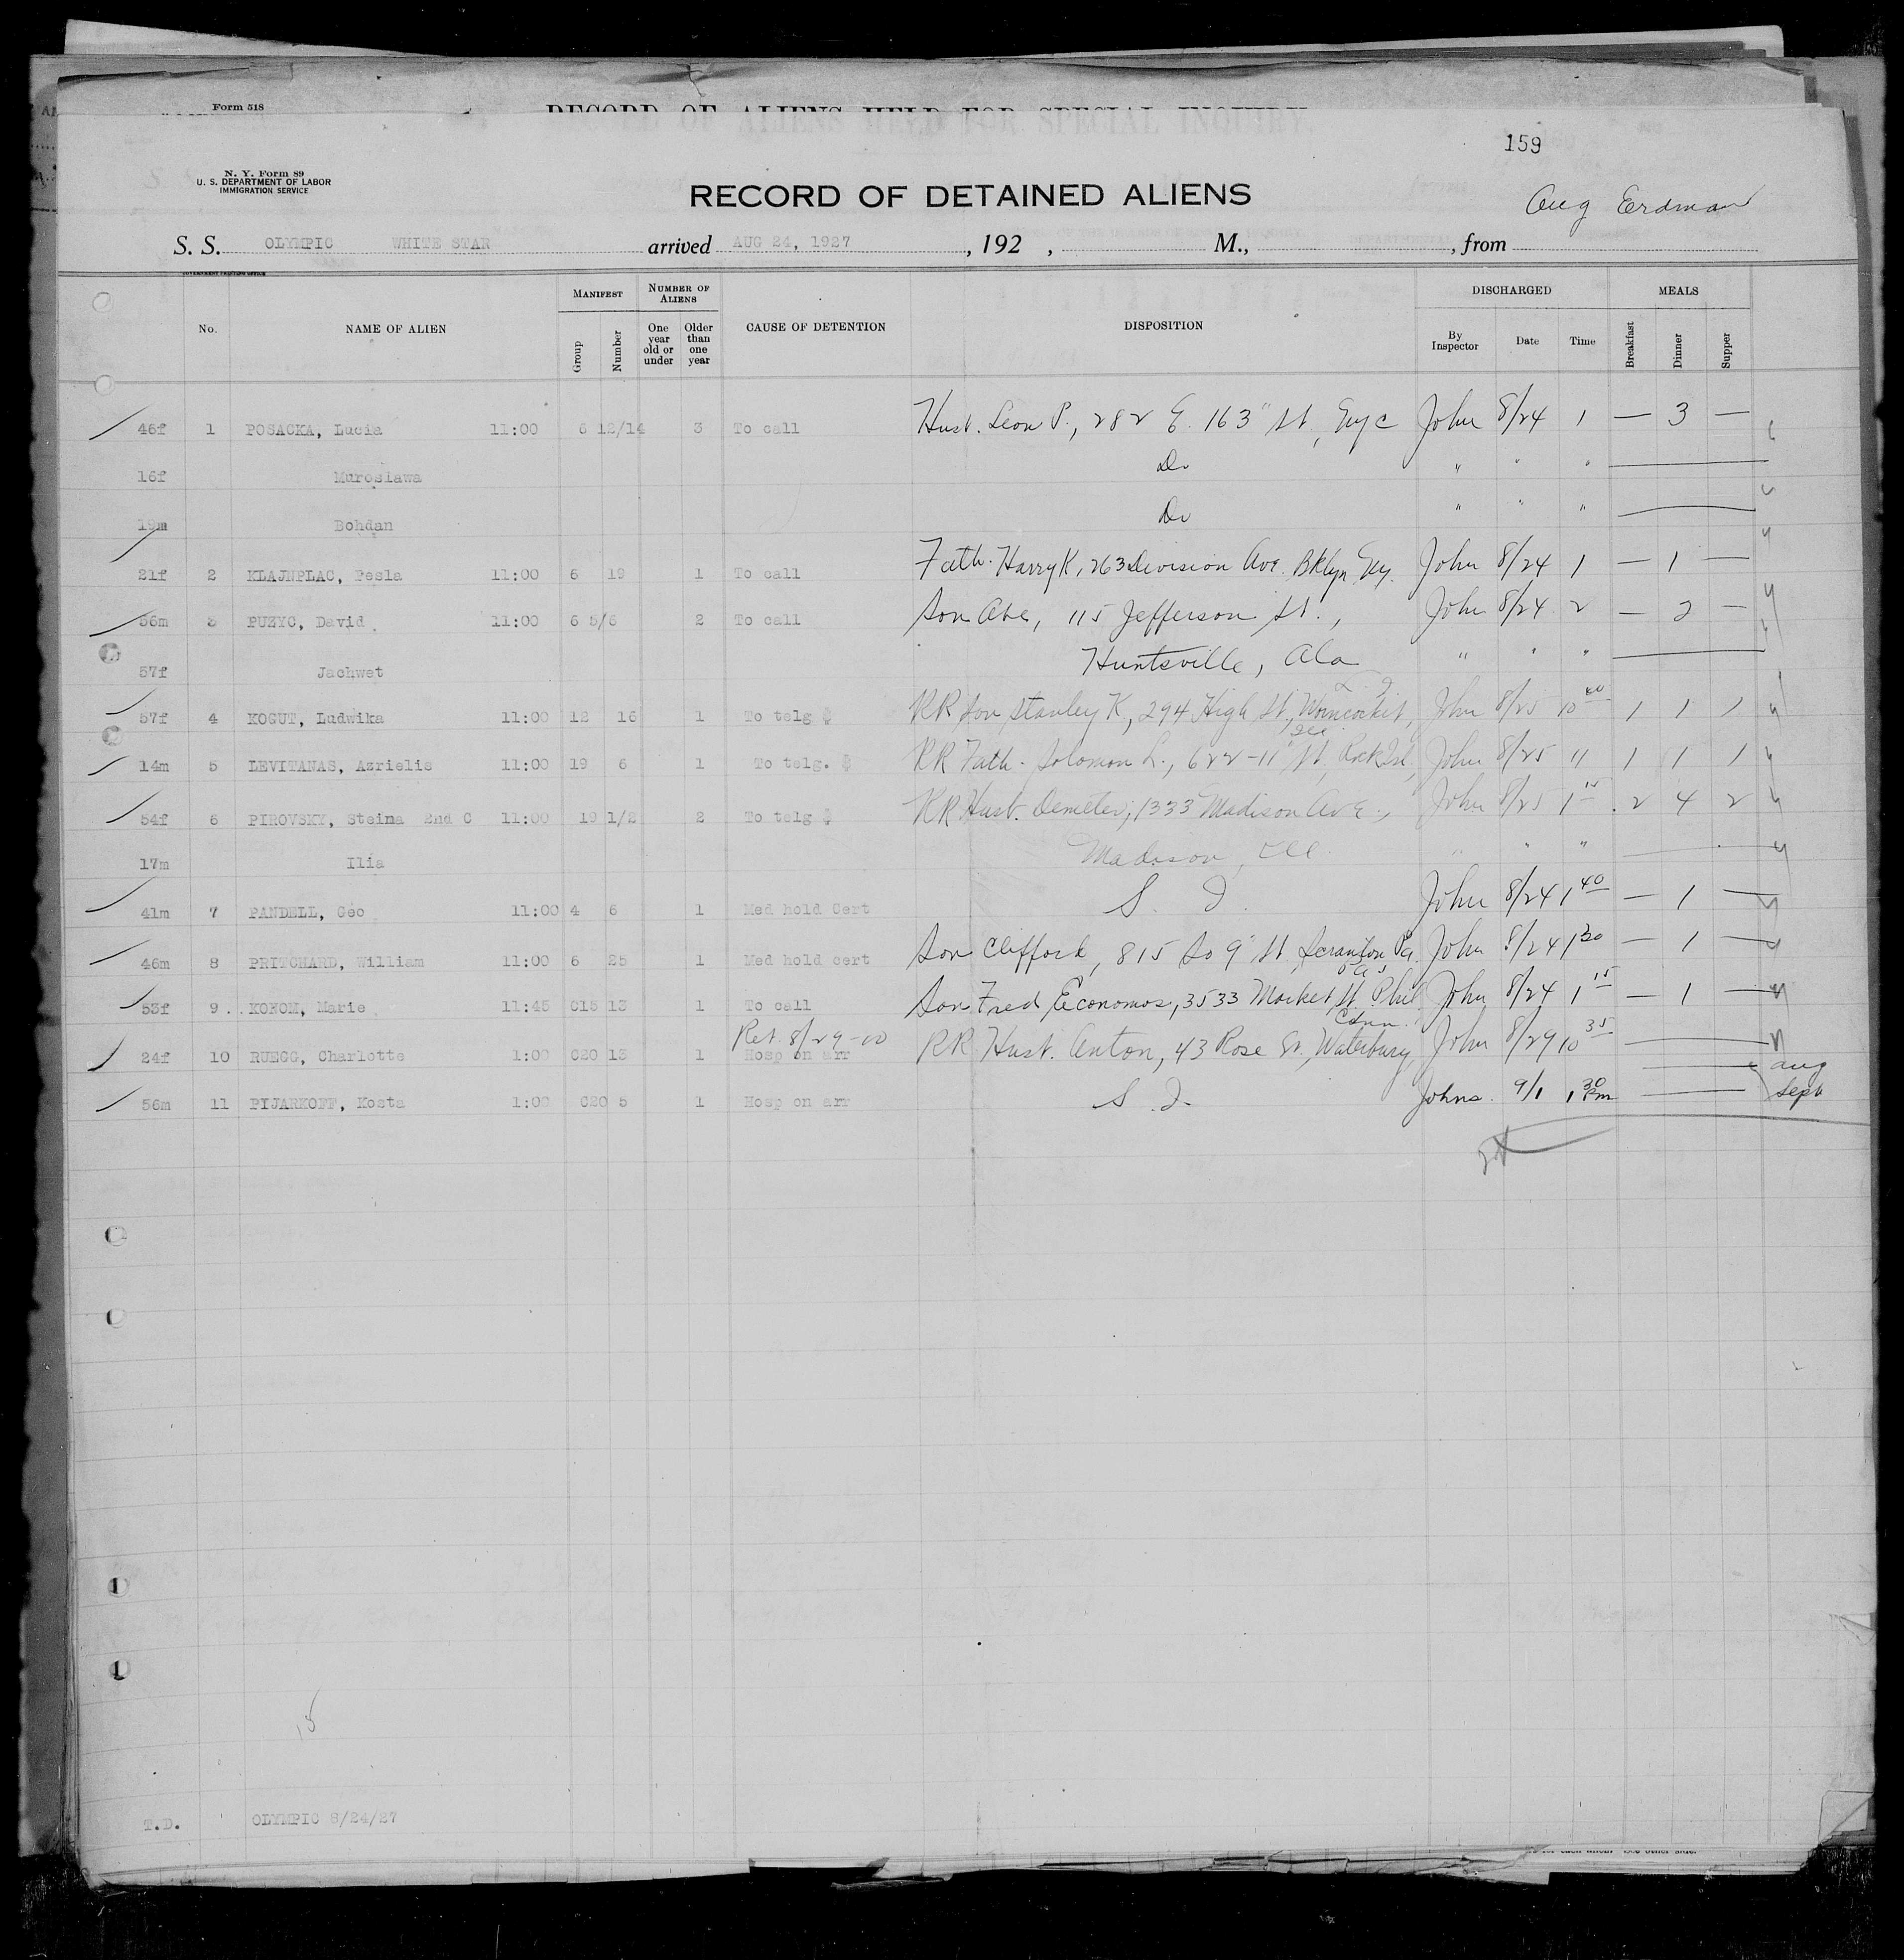 Form 518
RECORD OF ALIENS HELD FOR SPECIAL INQUIRY
159
N. Y. Form 89
U. S. DEPARTMENT OF LABOR
IMMIGRATION SERVICE
RECORD OF DETAINED ALIENS
Aug Erdman
S. S. OLYMPIC WHITE STAR arrived AUG 24, 1927, 192 , M., , from
GOVERNMENT PRINTING OFFICE
MANIFEST NUMBER OF ALIENS DISCHARGED MEALS
No. NAME OF ALIEN Group Number One year old or under Older than one year CAUSE OF DETENTION DISPOSITION By Inspector Date Time Breakfast Dinner Supper
46f 1 POSACKA, Lucia 11:00 6 12/14 3 To call Husb. Leon P., 282 E. 163" St, NyC John 8/24 1 — 3 —
16f Muroslawa Do " " "
19m Bohdan Do " " "
21f 2 KLAJNPLAC, Pesla 11:00 6 19 1 To call Fath. Harry K, 263 Division Ave. Bklyn Ny. John 8/24 1 — 1 —
56m 3 PUZYC, David 11:00 6 5/6 2 To call Son Abe, 115 Jefferson St., John 8/24 2 — 2 —
57f Jachwet Huntsville, Ala " " "
57f 4 KOGUT, Ludwika 11:00 12 16 1 To telg $ RR Son Stanley K, 294 High St, Woncockit, John 8/25 10 40 1 1 1
14m 5 LEVITANAS, Azrielis 11:00 19 6 1 To telg. $ RR Fath. Solomon L., 622-11" St, Rock Isl, Ill John 8/25 11 1 1 1
54f 6 PIROVSKY, Steina 2nd C 11:00 19 1/2 2 To telg $ RR Husb. Demeter, 1333 Madison Ave., John 8/25 1 15 2 4 2
17m Ilia Madison, Ill " " "
41m 7 PANDELL, Geo 11:00 4 6 1 Med hold Cert S. I. John 8/24 1 40 — 1 —
46m 8 PRITCHARD, William 11:00 6 25 1 Med hold cert Son Clifford, 815 So 9" St Scranton Pa. John 8/24 1 30 — 1 —
53f 9 KONOM, Marie 11:45 C15 13 1 To call Son Fred Economos, 3533 Market St. Phil Pa John 8/24 1 15 — 1 —
24f 10 RUEGG, Charlotte 1:00 C20 13 1 Ret. 8/29-00 Hosp on arr RR Husb. Anton, 43 Rose St., Waterbury, Conn. John 8/29 10 35
Aug
56m 11 PIJARKOFF, Kosta 1:00 C20 5 1 Hosp on arr S. I. Johns. 9/1 1 30 Pm Sept
15
T.D. OLYMPIC 8/24/27